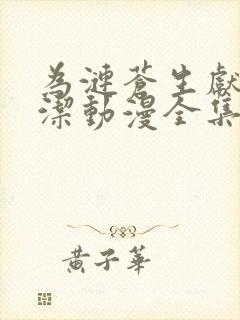 為漣蒼生獻
潔動漫全集
黃子華